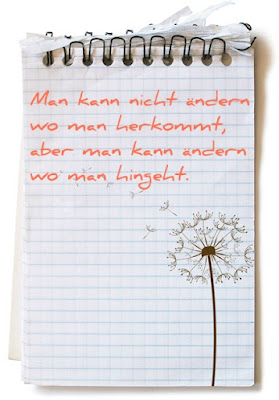 Man kann nicht ändern
wo man herkommt,
aber man kann ändern
wo man hingeht.